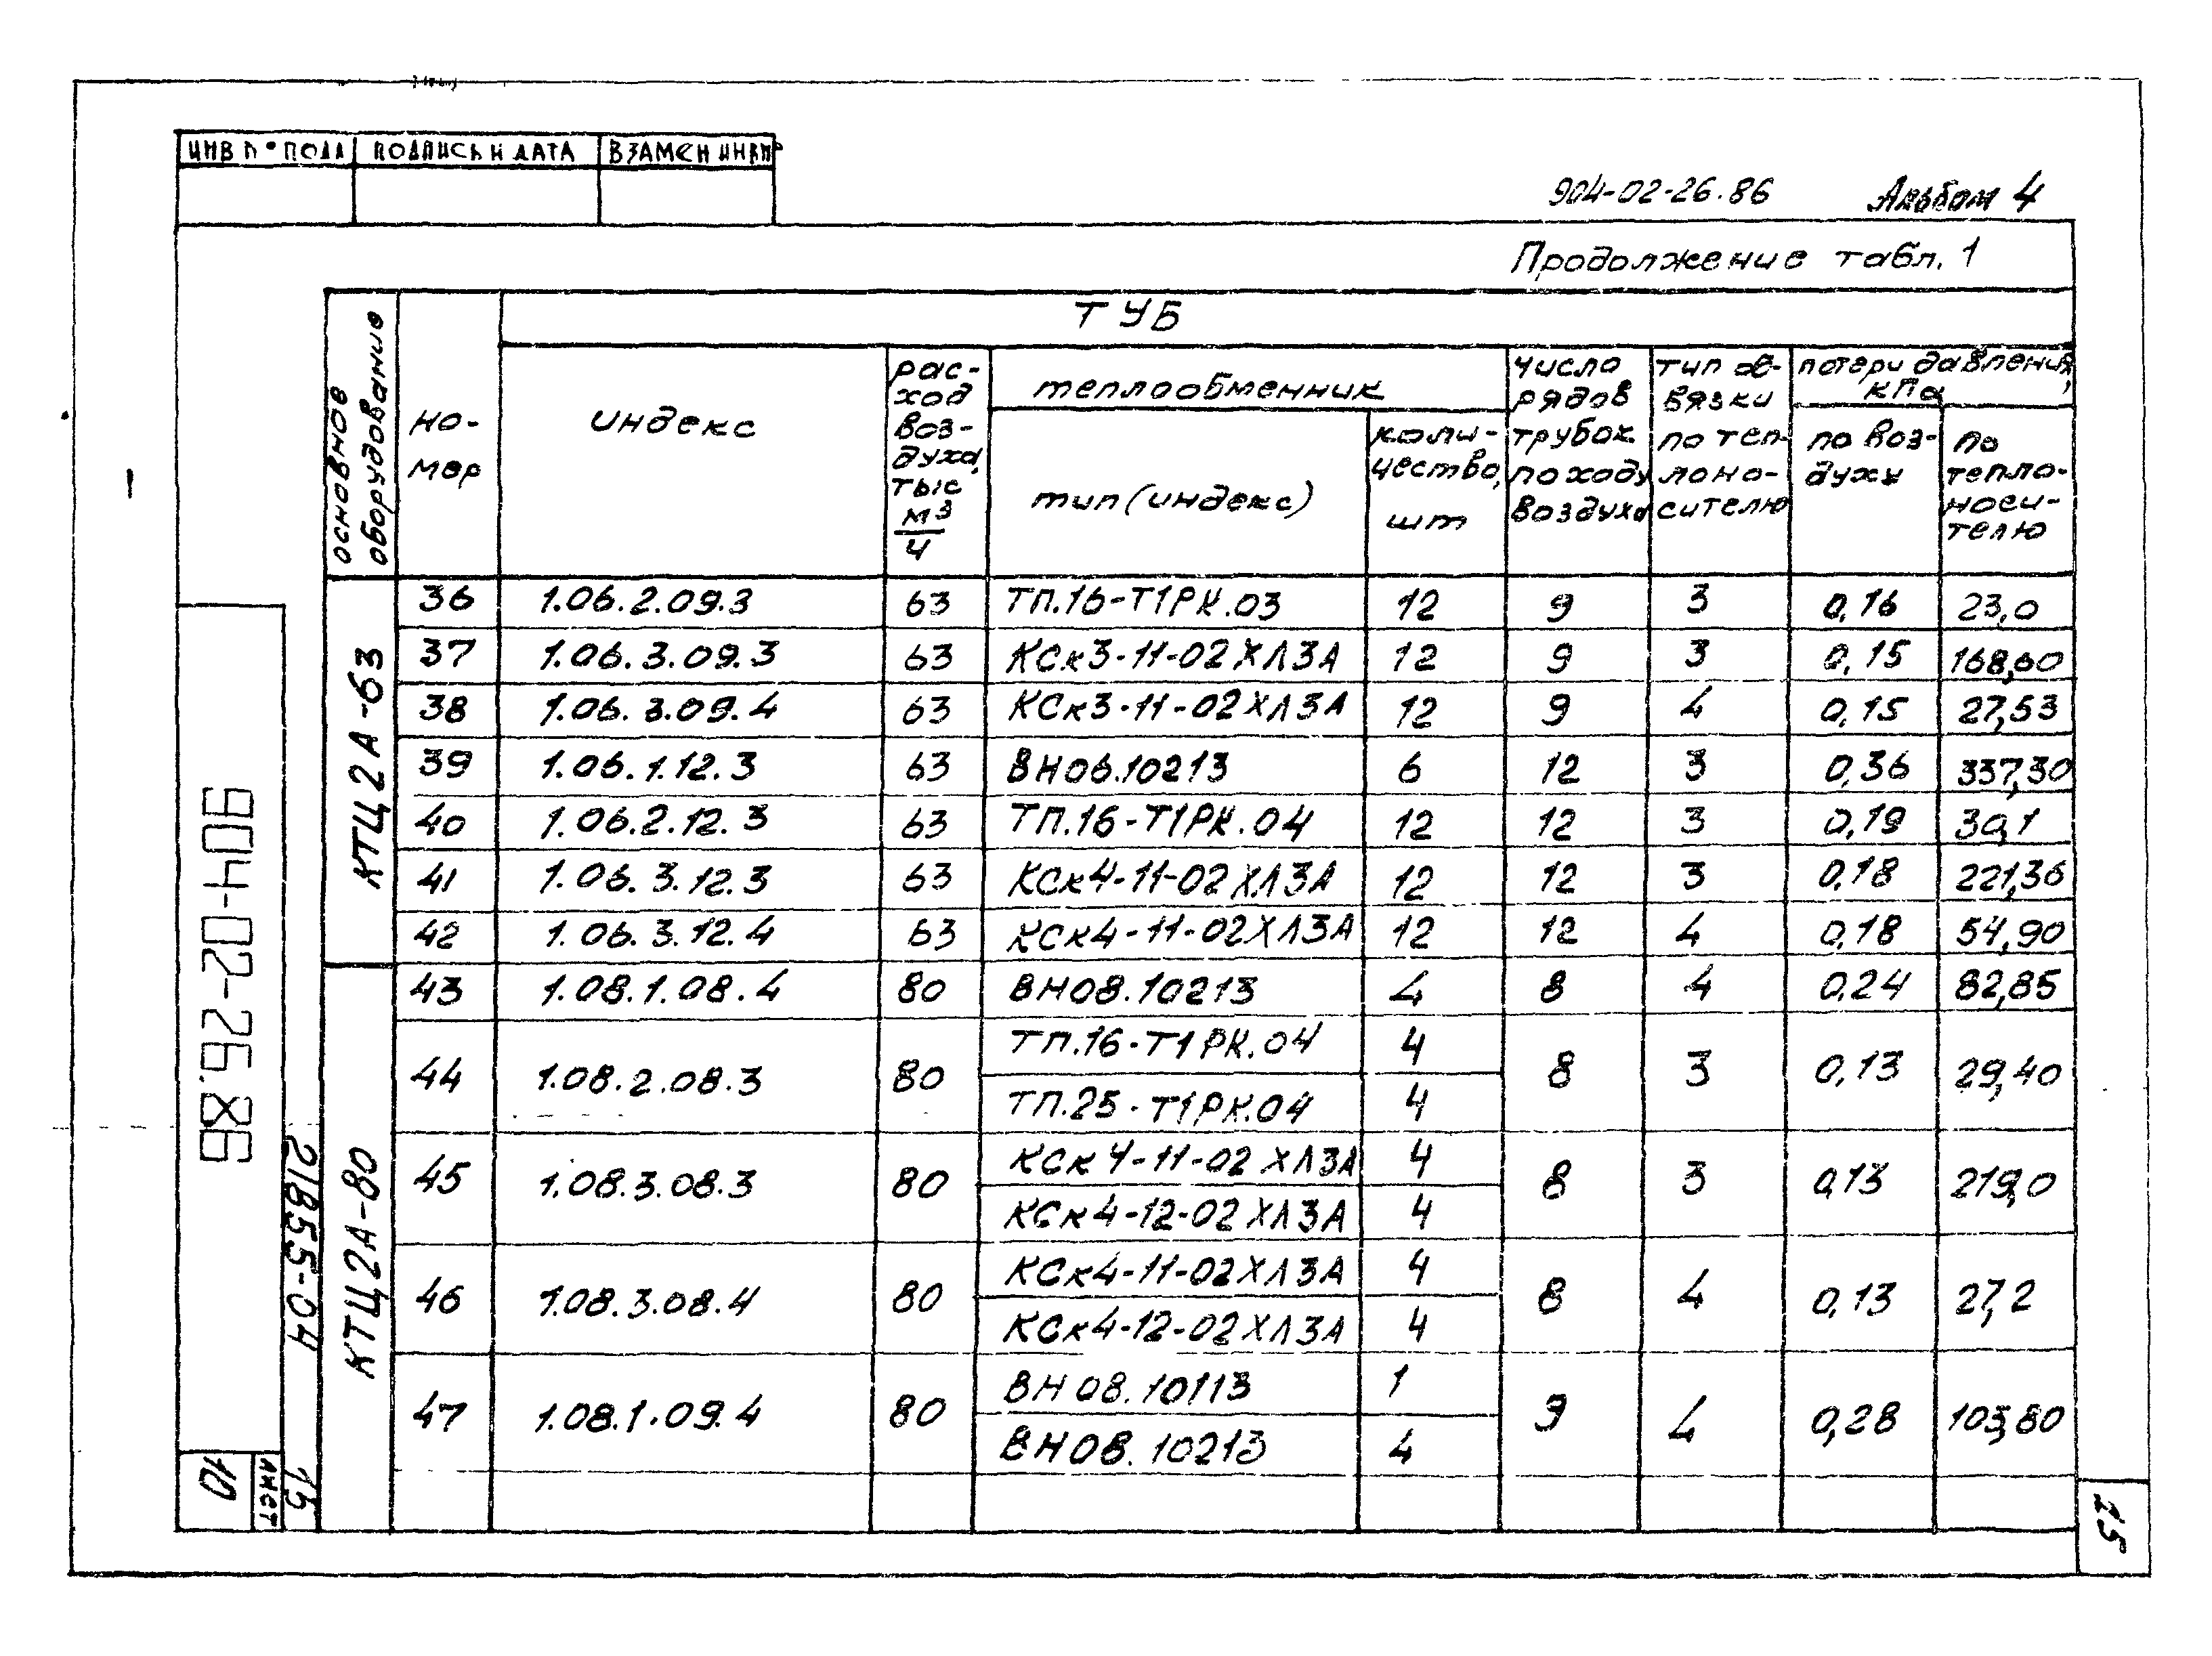 ИНВ N° ПОДЛ ПОДПИСЬ И ДАТА ВЗАМЕН ИНВ N°
904-02-26.86 Альбом 4
Продолжение табл. 1
основное оборудование
но-
мер
ТУБ
индекс
рас-
ход
воз-
духа,
тыс
м³
ч
теплообменник
тип (индекс)
коли-
чество,
шт
число
рядов
трубок
по ходу
воздуха
тип об-
вязки
по теп-
лоно-
сителю
потери давления,
кПа
по воз-
духу
по
тепло-
носи-
телю
КТЦ2А-63
36 1.06.2.09.3 63 ТП.16-Т1РК.03 12 9 3 0,16 23,0
37 1.06.3.09.3 63 КСк3-11-02ХЛ3А 12 9 3 0,15 168,60
38 1.06.3.09.4 63 КСк3-11-02ХЛ3А 12 9 4 0,15 27,53
39 1.06.1.12.3 63 ВН06.10213 6 12 3 0,36 337,30
40 1.06.2.12.3 63 ТП.16-Т1РК.04 12 12 3 0,19 30,1
41 1.06.3.12.3 63 КСк4-11-02ХЛ3А 12 12 3 0,18 221,36
42 1.06.3.12.4 63 КСк4-11-02ХЛ3А 12 12 4 0,18 54,90
КТЦ2А-80
43 1.08.1.08.4 80 ВН08.10213 4 8 4 0,24 82,85
44 1.08.2.08.3 80 ТП.16-Т1РК.04 4 8 3 0,13 29,40
ТП.25-Т1РК.04 4
45 1.08.3.08.3 80 КСк4-11-02ХЛ3А 4 8 3 0,13 219,0
КСк4-12-02ХЛ3А 4
46 1.08.3.08.4 80 КСк4-11-02ХЛ3А 4 8 4 0,13 27,2
КСк4-12-02ХЛ3А 4
47 1.08.1.09.4 80 ВН08.10113 1 9 4 0,28 103,80
ВН08.10213 4
904-02-26.86
21855-04 15
ЛИСТ
10
15